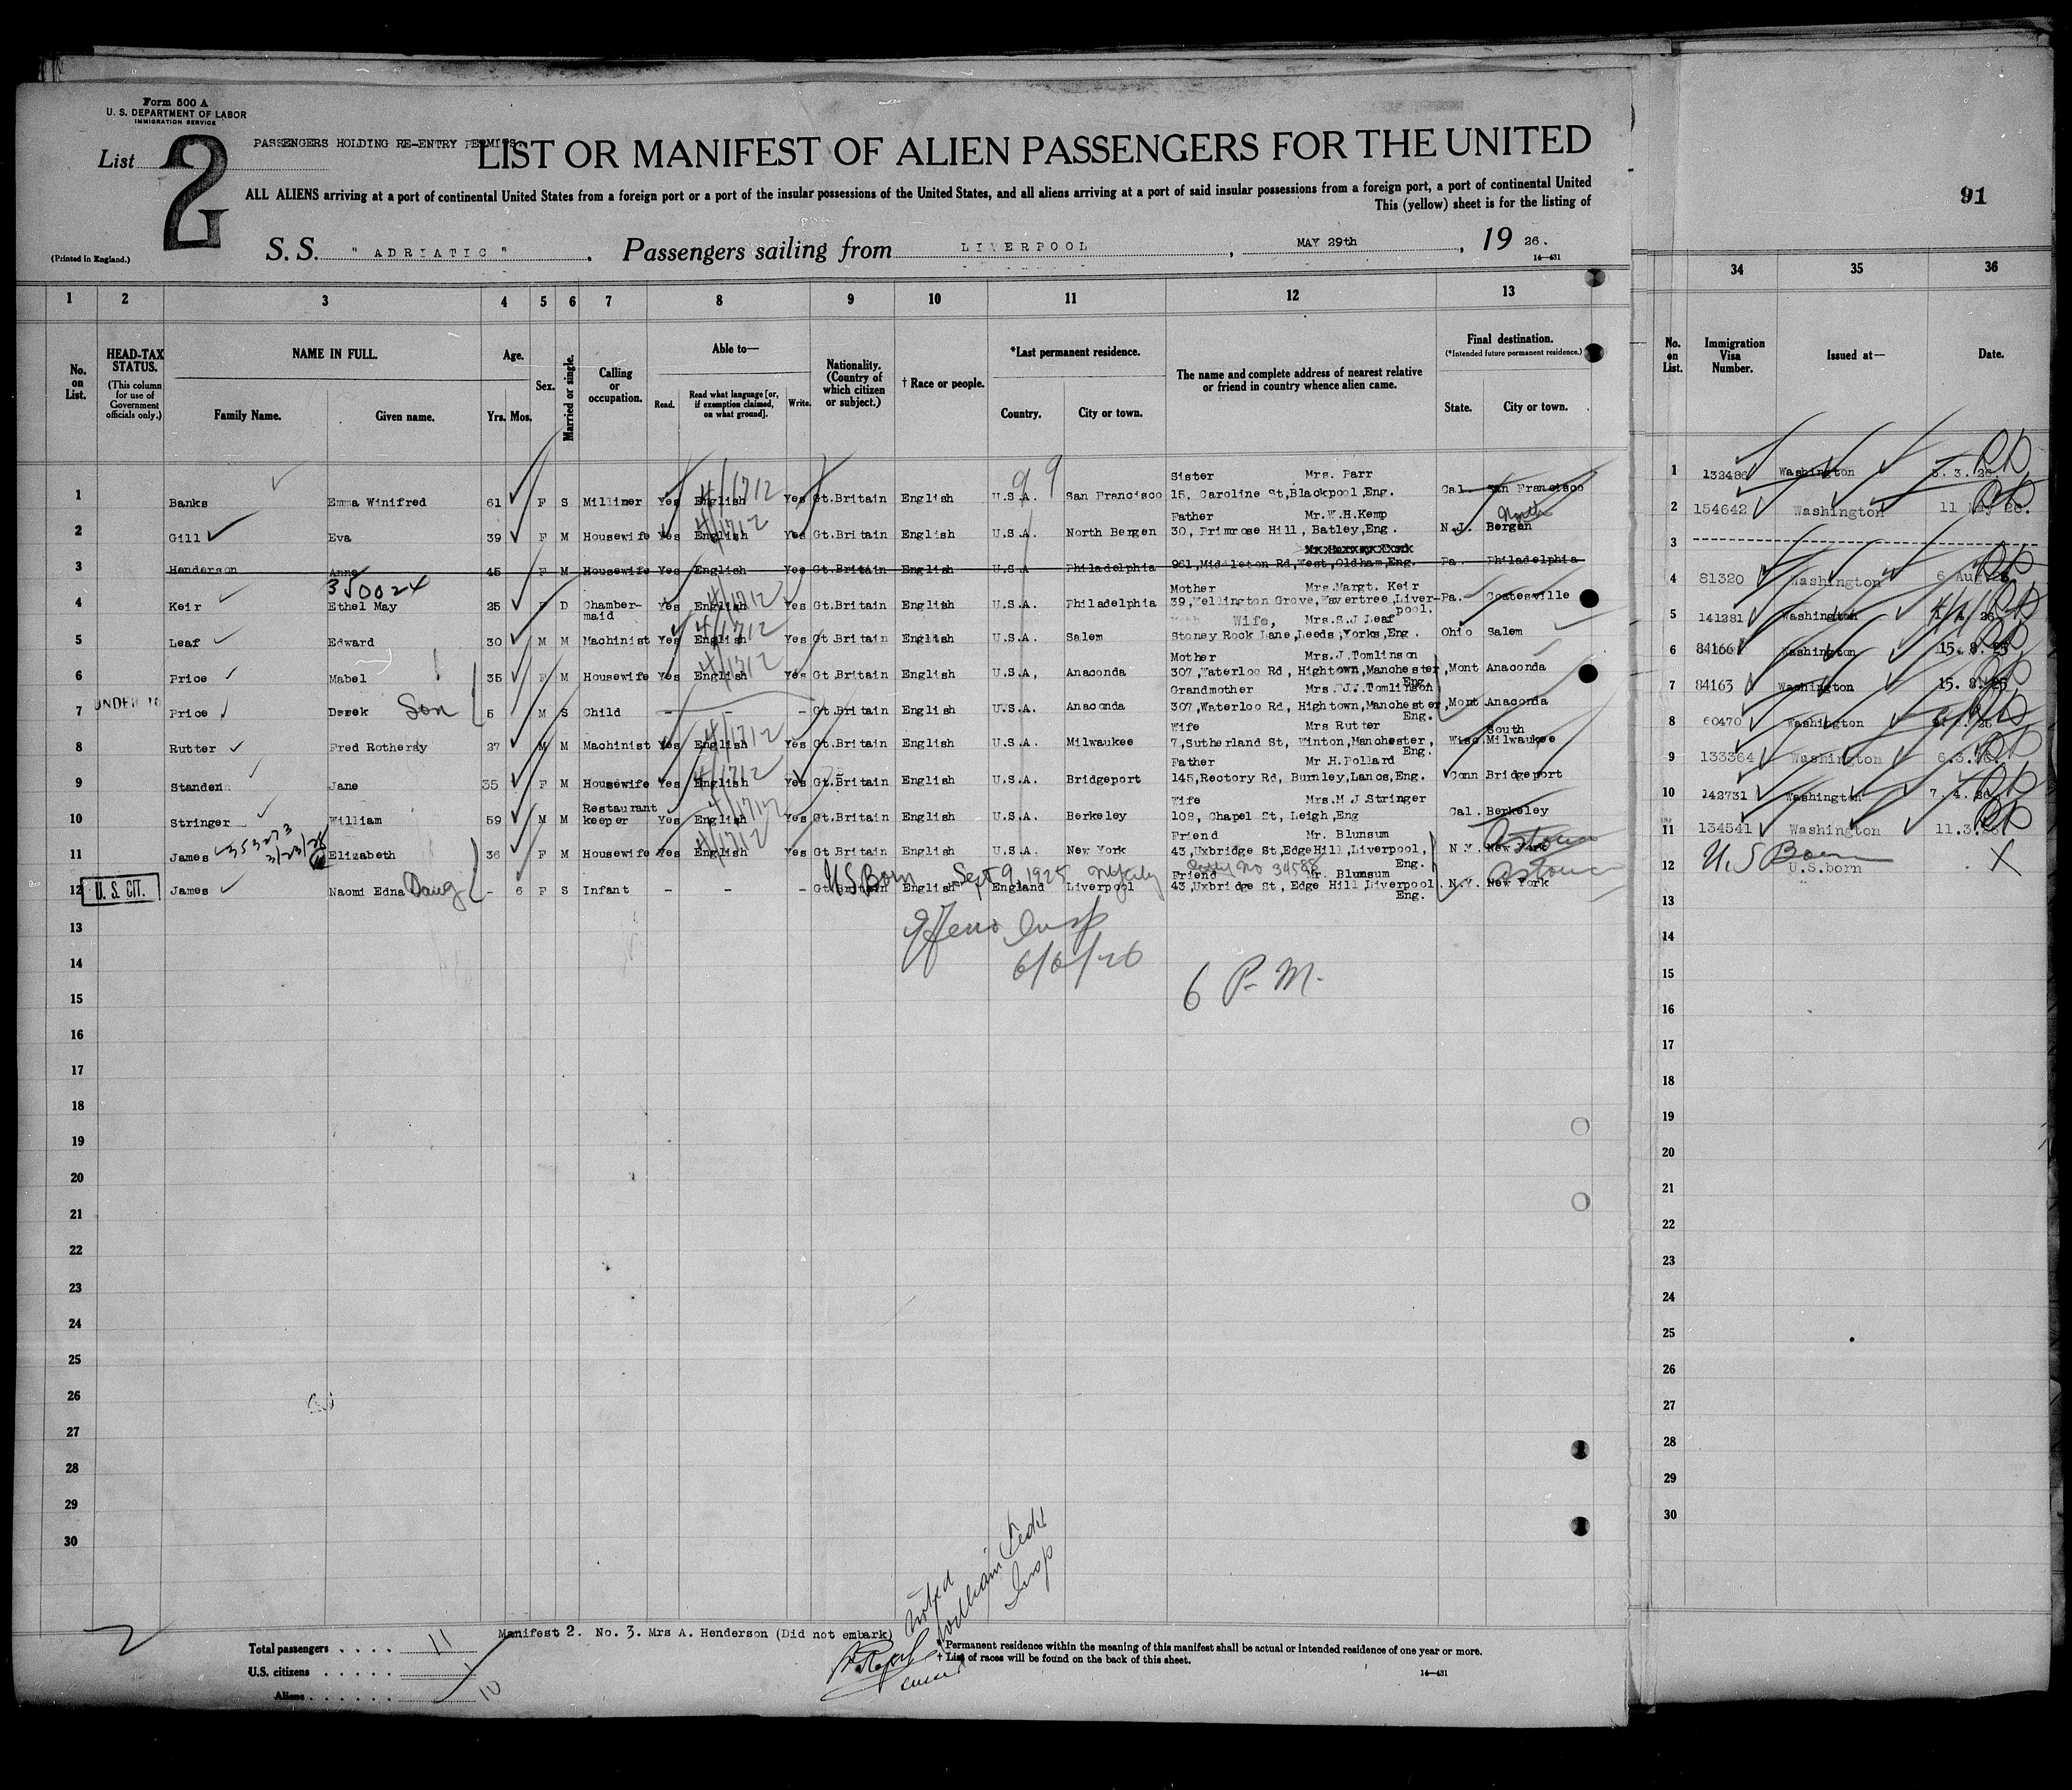 Form 500 A
U. S. DEPARTMENT OF LABOR
IMMIGRATION SERVICE
List 2
PASSENGERS HOLDING RE-ENTRY PERMITS
LIST OR MANIFEST OF ALIEN PASSENGERS FOR THE UNITED
ALL ALIENS arriving at a port of continental United States from a foreign port or a port of the insular possessions of the United States, and all aliens arriving at a port of said insular possessions from a foreign port, a port of continental United
This (yellow) sheet is for the listing of
91
(Printed in England.)
S. S. " ADRIATIC " . Passengers sailing from LIVERPOOL , MAY 29th , 19 26.
14—431
1 2 3 4 5 6 7 8 9 10 11 12 13 34 35 36
No. on List.
HEAD-TAX STATUS.
(This column for use of Government officials only.)
NAME IN FULL.
Family Name. Given name.
Age.
Yrs. Mos.
Sex.
Married or single.
Calling or occupation.
Able to—
Read. Read what language [or, if exemption claimed, on what ground]. Write.
Nationality. (Country of which citizen or subject.)
† Race or people.
*Last permanent residence.
Country. City or town.
The name and complete address of nearest relative or friend in country whence alien came.
Final destination.
(*Intended future permanent residence.)
State. City or town.
No. on List.
Immigration Visa Number.
Issued at—
Date.
99
Sister Mrs. Parr
1 Banks Emma Winifred 61 F S Milliner Yes English 4/1712 Yes Gt.Britain English U.S.A. San Francisco 15, Caroline St,Blackpool,Eng. Cal. San Francisco
1 132486 Washington 5. 3. 26
Father Mr.W.H.Kemp
2 Gill Eva 39 F M Housewife Yes English 4/1712 Yes Gt.Britain English U.S.A. North Bergen 30, Primrose Hill, Batley,Eng. N.J. North Bergen
2 154642 Washington 11 May 26.
3 Henderson Anne 45 F M Housewife Yes English Yes Gt.Britain English U.S.A Philadelphia 961,Middleton Rd,West,Oldham,Eng. Pa. Philadelphia
3
350024
Mother Mrs.Margt. Keir
4 Keir Ethel May 25 F D Chamber-maid Yes English 4/1712 Yes Gt.Britain English U.S.A. Philadelphia 39,Wellington Grove,Wavertree,Liver-pool. Pa. Coatesville
4 81320 Washington 6 Aug 25
Wife, Mrs.S.J Leaf
5 Leaf Edward 30 M M Machinist Yes English 4/1712 Yes Gt.Britain English U.S.A. Salem Stoney Rock Lane,Leeds,Yorks,Eng. Ohio Salem
5 141281 Washington
Mother Mrs.J.Tomlinson
6 Price Mabel 35 F M Housewife Yes English 4/1712 Yes Gt.Britain English U.S.A. Anaconda 307,Waterloo Rd, Hightown,Manchester, Eng. Mont Anaconda
6 84166 Washington 15. 8. 25
UNDER 16
Grandmother Mrs.J.Tomlinson
7 Price Derek Son 5 M S Child – – – Gt.Britain English U.S.A. Anaconda 307,Waterloo Rd, Hightown,Manchester, Eng. Mont Anaconda
7 84163 Washington 15. 8. 25
Wife Mrs Rutter
8 Rutter Fred Rothery 27 M M Machinist Yes English 4/1712 Yes Gt.Britain English U.S.A. Milwaukee 7,Sutherland St, Winton,Manchester, Eng. Wisc South Milwaukee
8 60470 Washington
Father Mr H.Pollard
9 Standen Jane 35 F M Housewife Yes English 4/1712 Yes Gt.Britain English U.S.A. Bridgeport 145,Rectory Rd, Burnley,Lancs,Eng. Conn Bridgeport
9 133364 Washington 6.3.26.
Wife Mrs.M J Stringer
10 Stringer William 59 M M Restaurant keeper Yes English 4/1712 Yes Gt.Britain English U.S.A. Berkeley 108, Chapel St, Leigh,Eng Cal. Berkeley
10 142731 Washington 7. 4. 26
353273
3/23/28
Friend Mr. Blunsum
11 James Elizabeth 36 F M Housewife Yes English 4/1712 Yes Gt Britain English U.S.A. New York 43,Uxbridge St,Edge Hill,Liverpool, Eng. N.Y. New York
11 134541 Washington 11.3.26
US Born Sept 9, 1925 NYCity
Friend Mr. Blunsum
12 U. S. CIT. James Naomi Edna Daug - 6 F S Infant – – – Gt.Britain English England Liverpool 43,Uxbridge St, Edge Hill,Liverpool Eng. N.Y. New York
12 U.S Born U.S.born X
Insp
6/6/26
6 P. M.
13
14
15
16
17
18
19
20
21
22
23
24
25
26
27
28
29
30
Noted
Insp
Manifest 2. No. 3. Mrs A. Henderson (Did not embark)
Total passengers . . . . 11
U.S. citizens . . . . . 1
Aliens . . . . . . 10
* Permanent residence within the meaning of this manifest shall be actual or intended residence of one year or more.
† List of races will be found on the back of this sheet.
14—431